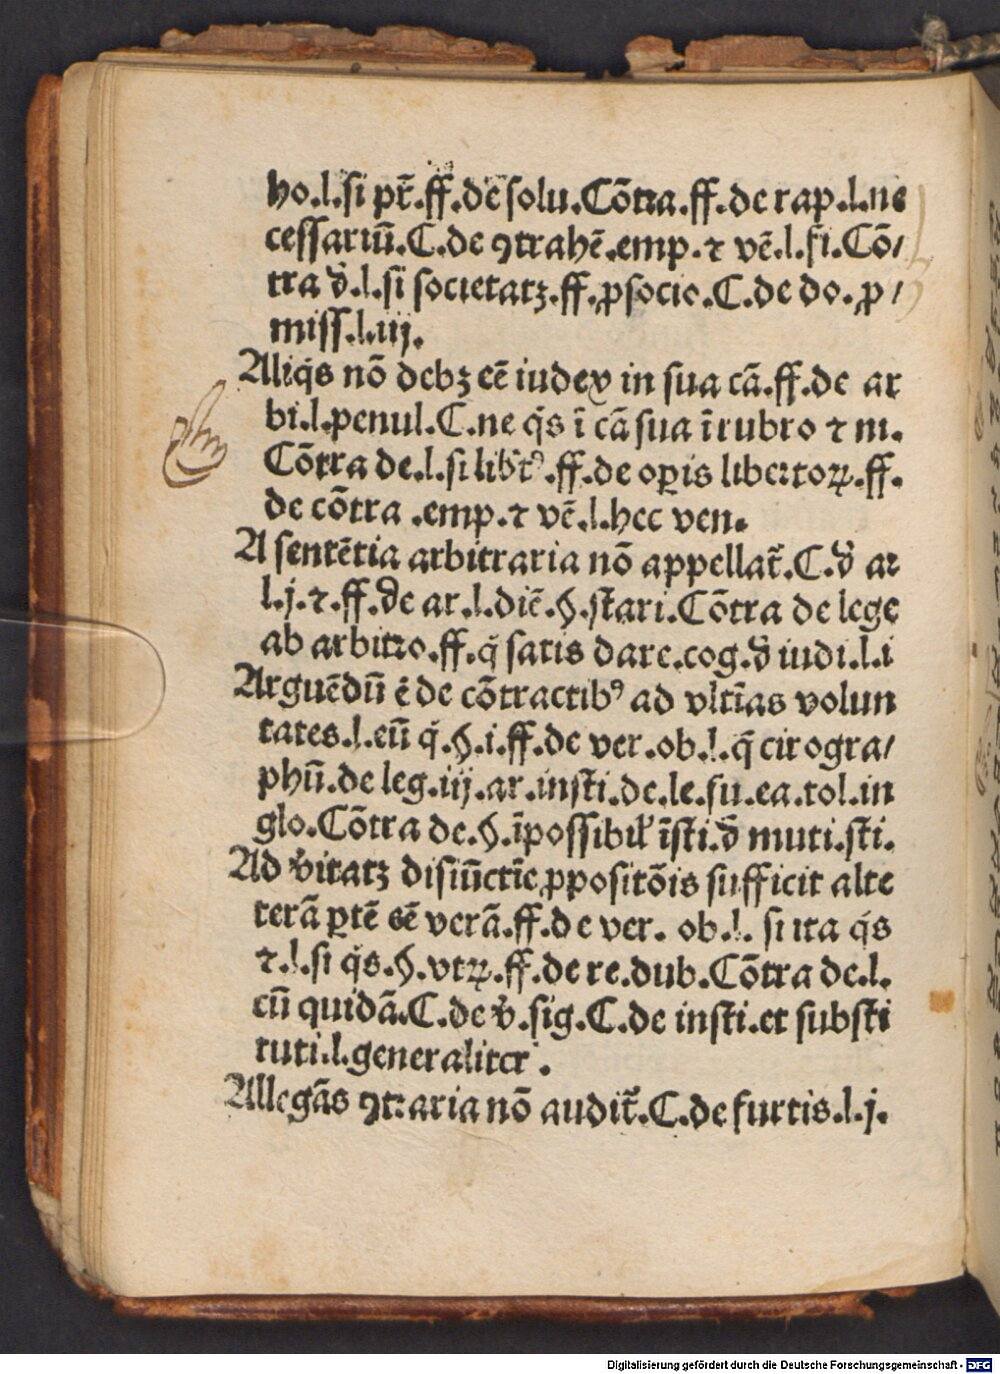 ho.l.si pr̃.ff.de solu.Cõtra.ff.de rap.l.ne
cessariũ.C.de ꝯtrahẽ.emp.⁊ vẽ.l.fi.Cõ/
tra d̾.l.si societatꝫ.ff.ꝓsocio.C.de do.ꝓ/
miss.l.iij.
Aliq̃s nõ debꝫ eẽ iudex in sua cã.ff.de ar
bi.l.penul.C.ne q̃s ĩ cã sua ĩ rubro ⁊ ni.
Cõtra de.l.si lib̾tꝰ.ff.de oꝑis libertoꝝ.ff.
de cõtra .emp.⁊ vẽ.l.hec ven.
A sentẽtia arbitraria nõ appellat̃.C.d̾ ar
l.j.⁊.ff.de ar.l.diẽ.§.stari.Cõtra de lege
ab arbitro.ff.q̃ satis dare.cog.d̾ iudi.l.i
Arguẽdũ ẽ de cõtractibꝰ ad vltĩas volun
tates.l.eũ q̃.§.i.ff.de ver.ob.l.q̃ cirogra/
phũ.de leg.iij.ar.insti.de.le.fu.ea.tol.in
glo.Cõtra de.§.ĩpossibil̾ ĩsti.d̾ inuti.sti.
Ad v̾itatꝫ disiũctiẽ ꝓpositõis sufficit alte
terã ꝑtẽ eẽ verã.ff.de ver. ob.l. si ita q̃s
⁊.l.si q̃s.§.vtꝝ.ff.de re.dub.Cõtra de.l.
cũ quidã.C.de v̾.sig.C.de insti.et substi
tuti.l.generaliter .
Allegãs ꝯtraria nõ audit̃.C.de furtis.l.j.
Digitalisierung gefördert durch die Deutsche Forschungsgemeinschaft - DFG